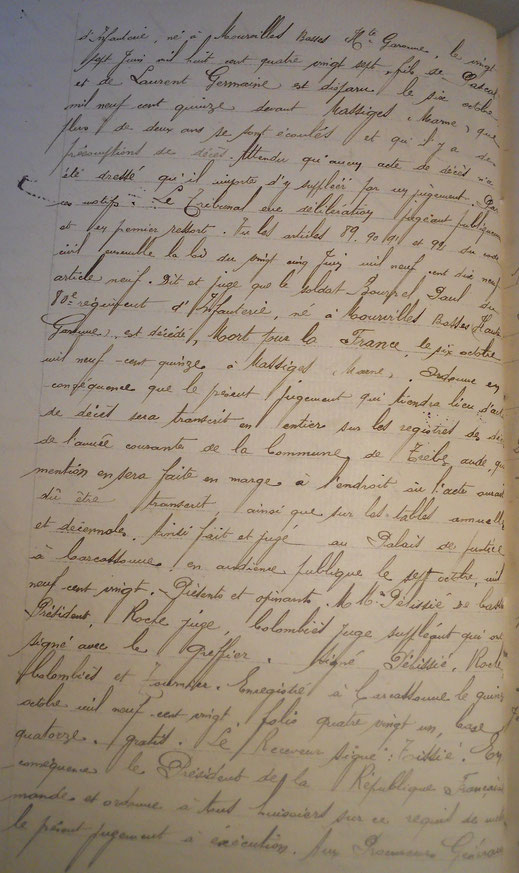 d'Infanterie, né à Mourvilles Basses Hte Garonne, le vingt
sept Juin mil huit cent quatre vingt sept, fils de Pascal
et de Laurent Germaine est disparu le six octobre
mil neuf cent quinze devant Massiges, Marne, que
plus de deux ans se sont écoulés et qu'il y a des
présomptions de décès. Attendu qu'aucun acte de décès n'a
été dressé qu'il importe d'y suppléer par un jugement. Par
ces motifs : Le Tribunal après délibération jugeant publiquement
et en premier ressort. Vu les articles 89. 90. 91 et 92 du code
civil ensemble la loi du vingt cinq Juin mil neuf cent dix neuf
article neuf. Dit et juge que le soldat Bourrel Paul du
80e régiment d'Infanterie, né à Mourvilles Basses Haute
Garonne, est décédé, Mort pour la France, le six octobre
mil neuf cent quinze à Massiges, Marne. Ordonne en
conséquence que le présent jugement qui tiendra lieu d'acte
de décès sera transcrit en entier sur les registres de
de l'année courante de la Commune de Trèbes, aude, que
mention en sera faite en marge à l'endroit où l'acte aurait
dû être transcrit ainsi que sur les tables annuelles
et décennale. Ainsi fait et jugé au Palais de justice
à Carcassonne en audience publique le sept octobre mil
neuf cent vingt. Présents et opinants. M.M. Pélissié de
Président, Roche juge, Colombiés Juge suppléant qui ont
signé avec le greffier. Signé Pélissié, Roche
Colombiés et Fournier. Enregistré à Carcassonne le quinze
octobre mil neuf cent vingt. folio quatre vingt un, case
quatorze. gratis. Le Receveur signé : Tissié. En
conséquence le Président de la République Française
mande et ordonne à tous huissiers sur ce requis de mettre
le présent jugement à exécution. Aux Procureurs Généraux